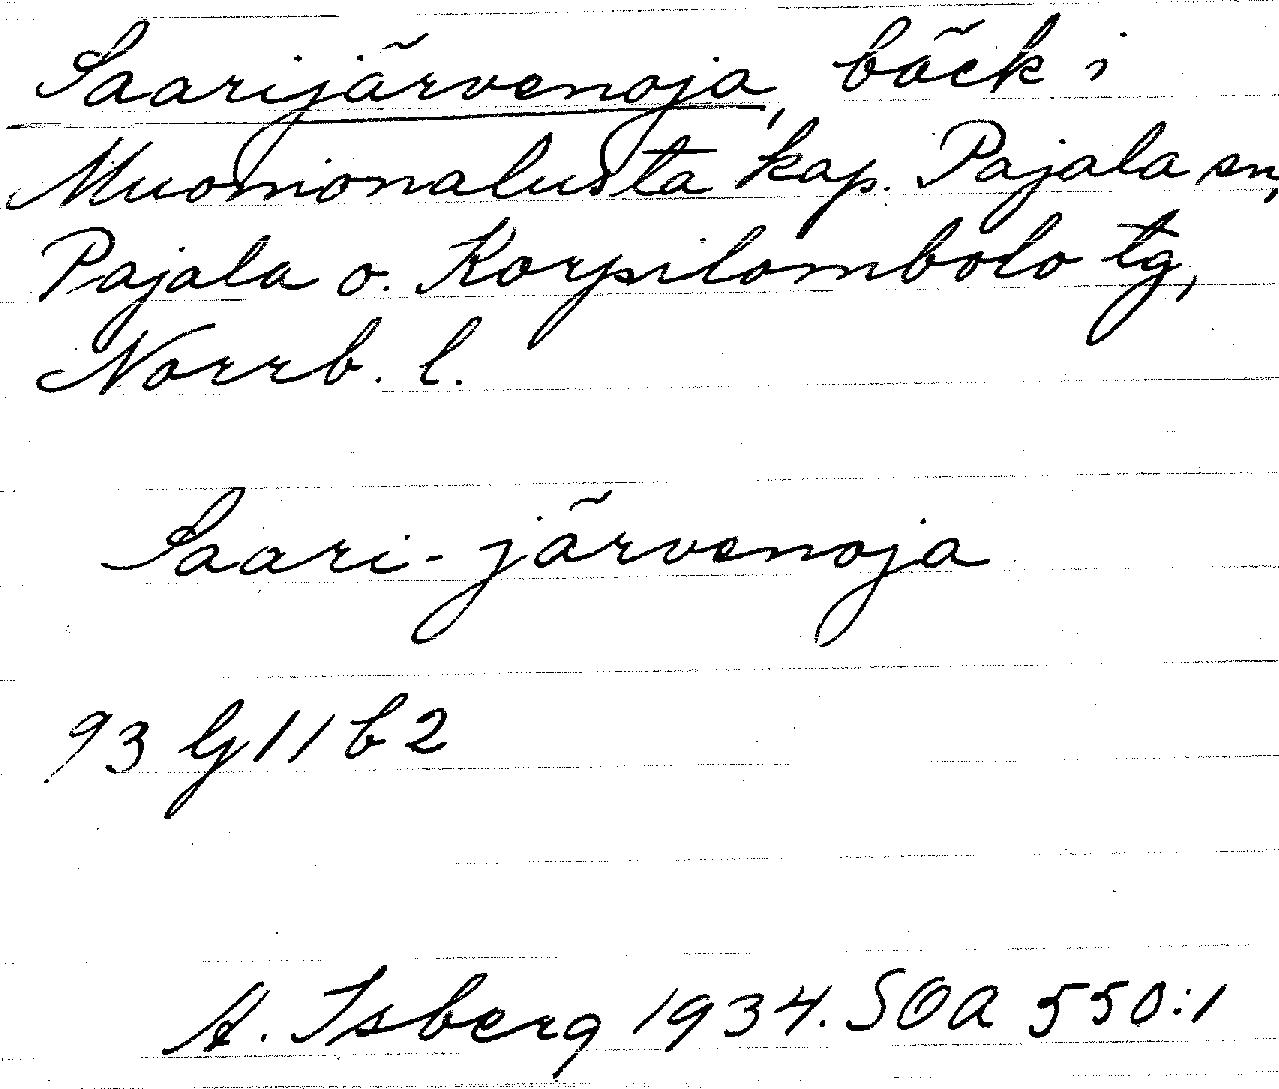 Saarijärvenoja, bäck i
Muonionalusta kap. Pajala sn,
Pajala o. Korpilombolo tg,
Norrb. l.
Saari-järvenoja
93 G 11 b 2
A. Isberg 1934. SOA 550:1